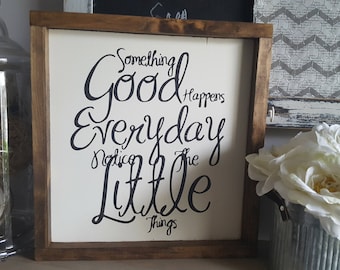 Something
Good
Happens
Everyday
Notice The
Little
Things